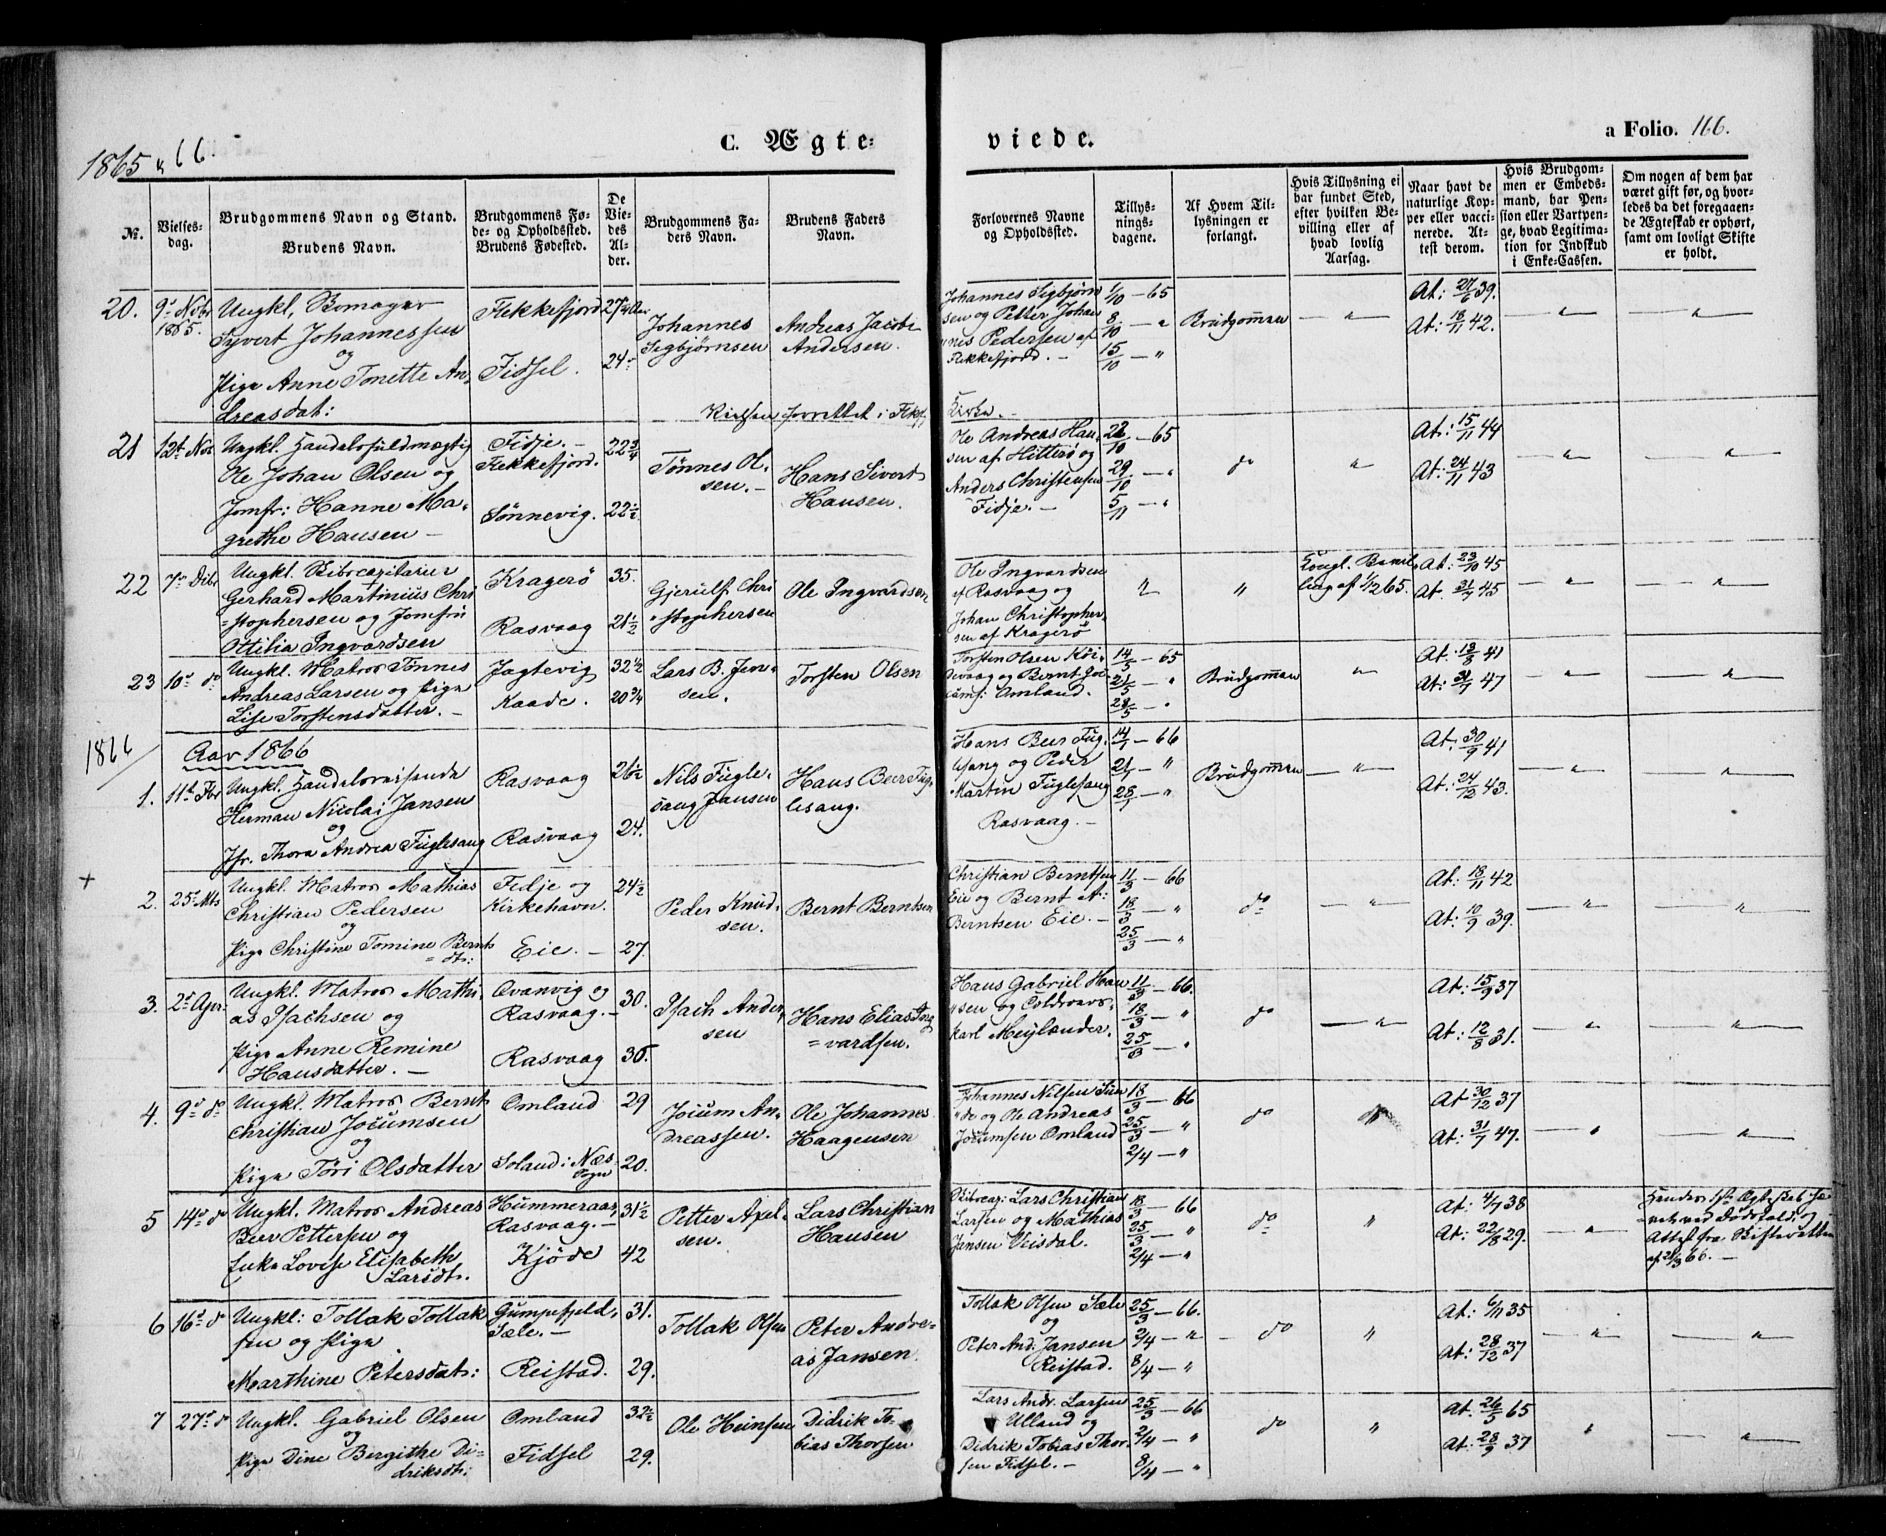 1865 & 66.
C. Ægte-
viede.
a Folio. 166.
No.
Vielses-
dag.
Brudgommens Navn og Stand.
Brudens Navn.
Brudgommens Fø-
de- og Opholdssted.
Brudens Fødested.
De
Vie-
des
Al-
der.
Brudgommens Fa-
ders Navn.
Brudens Faders
Navn.
Forlovernes Navne
og Opholdssted.
Tillys-
nings-
dagene.
Af Hvem Til-
lysningen er
forlangt.
Hvis Tillysning ei
har fundet Sted,
efter hvilken Be-
villing eller af
hvad lovlig
Aarsag.
Naar havt de
naturlige Kop-
per eller vacci-
nerede. At-
test derom.
Hvis Brudgom-
men er Embeds-
mand, har Pen-
sion eller Vartpen-
ge, hvad Legitima-
tion for Indskud
i Enke-Cassen.
Om nogen af dem har
været gift før, og hvor-
ledes da det foregaaen-
de Ægteskab er ophørt,
samt om lovligt Skifte
er holdt.
20.
9de Nobr
1865.
Ungkl, Bomager
Syvert Johannessen
og
Pige Anne Tonette An-
dreasdat:
Flekkefjord
Fidsel.
24
Johannes
Sigbjørnsen
Andreas Jacob
Andersen.
Johannes Sigbjørn
sen og Petter Johan
nes Pedersen af
Flekkefjord. -
1/10 - 65
8/10 - "
15/10 - "
Brudgommen
"
At: 27/6 39.
At: 18/11 42.
"
"
Vielsen forrettet i Flekkf.
Kirke. -
21
12te Nov
Ungkl. Handelsfuldmægtig
Ole Johan Olsen og
Jomfr: Hanne Ma-
grethe Hansen -
Fidje. -
Flekkefjord.
Sønnevig.
22 3/4
22 1/2
Tønnes Ol-
sen. -
Hans Sivert
Hansen.
Ole Andreas Han-
sen af Hitterø og
Anders Christensen
Fidje. -
22/10 - 65
29/10 - "
5/11 - "
do
"
At: 15/11 44
At: 24/11 43
"
"
22
7de Dcbr
Ungkl.
Gerhard Martinius Chri
stophersen og Jomfru
Ottilia Ingvardsen
Kragerø
Rasvaag
35.
21 1/2
Gjerulf Chri
stophersen
Ole Ingvardsen
Ole Ingvardsen
af Rasvaag og
Johan Christopher
sen af Kragerø
"
"
Kongl. Bevil-
ling af 1/12 65.
At: 23/10 45
At. 31/7 45
"
"
23
10de do
Ungkl. Matros Tønnes
Andreas Larsen og Pige
Lise Torstensdatter. -
Jagtevig
Kaade.
32 1/2
20 3/4
Lars B. Jen-
sen.
Torsten Olsen
Torsten Olsen
Omland.
14/5 - 65
21/5 - "
28/5 - "
Brudgommen
"
At: 13/8 41
At: 31/7 47
"
"
1866
Aar 1866
1.
11te Fbr
Ungkl. Handelsreisende
Herman Nicolai Jansen
og
Jfr. Thora Andrea Fuglesang
Rasvaag
Rasvaag
26 1/2
24.
Nils Fugle-
sang Jansen
Hans Beer Fug-
lesang.
Hans Beer Fug-
lesang og Peder
Martin Fuglesang
Rasvaag. -
14/1 - 66
21/1 - "
28/1 - "
Brudgommen
"
At: 30/9 41
At: 24/12 43.
"
"
+
2.
25de Mts
Ungkl. Matros Mathias
Christian Pedersen
og
Pige Christine Tomine Bernts
dtr:
Fedje og
Kirkehavn.
Eie. -
24 1/2
27.
Peder Knud
sen.
Bernt Berntsen
Christian Berntsen
Eie og Bernt A:
Berntsen Eie. -
11/3 - 66
18/3 - "
25/3 - "
do
"
At: 18/11 42
At: 10/9 39.
"
"
3.
2de Apr:
Ungkl. Matros Mathi-
as Isachsen og
Pige Anne Remine
Hansdatter. -
Qvanvig og
Rasvaag. -
Rasvaag
30.
36.
Isach Ander-
sen
Hans Elias Ing
vardsen.
Hans Gabriel Han
sen og
Karl Meylænder.
11/3 - 66.
18/3 - "
25/3 - "
do
"
At: 15/9 37
At: 12/8 31.
"
"
4.
9de do
Ungkl. Matros Bernt
Christian Jocumsen
og
Pige Tøri Olsdatter
Omland
Soland i Næs
Sogn
29
20.
Jocum An-
dreassen.
Ole Johannes
Haagensen
Johannes Nilsen
og Ole Andreas
Jocumsen Omland
18/3 - 66
25/3 - "
2/4 - "
do
At: 30/12 37
At: 31/7 47.
"
"
5
14de do
Ungkl. Matros Andreas
Beer Pettersen og
Enke Lovise Elisabeth
Larsdt.
Hummeraas,
Rasvaag. -
Kjøde
31 1/2
42
Petter Axel-
sen.
Lars Christian
Hansen
Lars Christian
Larsen og Mathias
Jansen Veisdal.
18/3 - 66
25/3 - "
2/4 - "
do
"
At: 4/7 38
At: 22/8 29.
"
Hendes 1ste Ægteskab hæ-
vet ved Dødsfald, og
Attest fra Skifteretten
af 21/3 66. -
6
16de do
Ungkl: Tollak Tollak
sen og Pige
Marthine Petersdat:
Gumpefjeld,
Sæle. -
Reistad.
31.
29.
Tollak Olsen
Peter Andre-
as Jansen.
Tollak Olsen Sæle
og
Peter And. Jansen
Reistad.
25/3 - 66.
2/4 - "
8/4 - "
do
"
At: 6/11 35
At: 28/12 37
"
"
7
27de do
Ungkl. Gabriel Olsen
og
Pige Dine Bergithe Di-
driksdt:
Omland
Fidsel
32 1/2
29.
Ole Heinsen
Didrik To-
bias Thorsen
Lars Andr. Larsen
Ulland og
Didrik Tobias Thor-
sen Fidsel. -
25/3 - 66
2/4 - "
8/4 - "
do
"
At: 26/5 65
At: 28/9 37
"
"